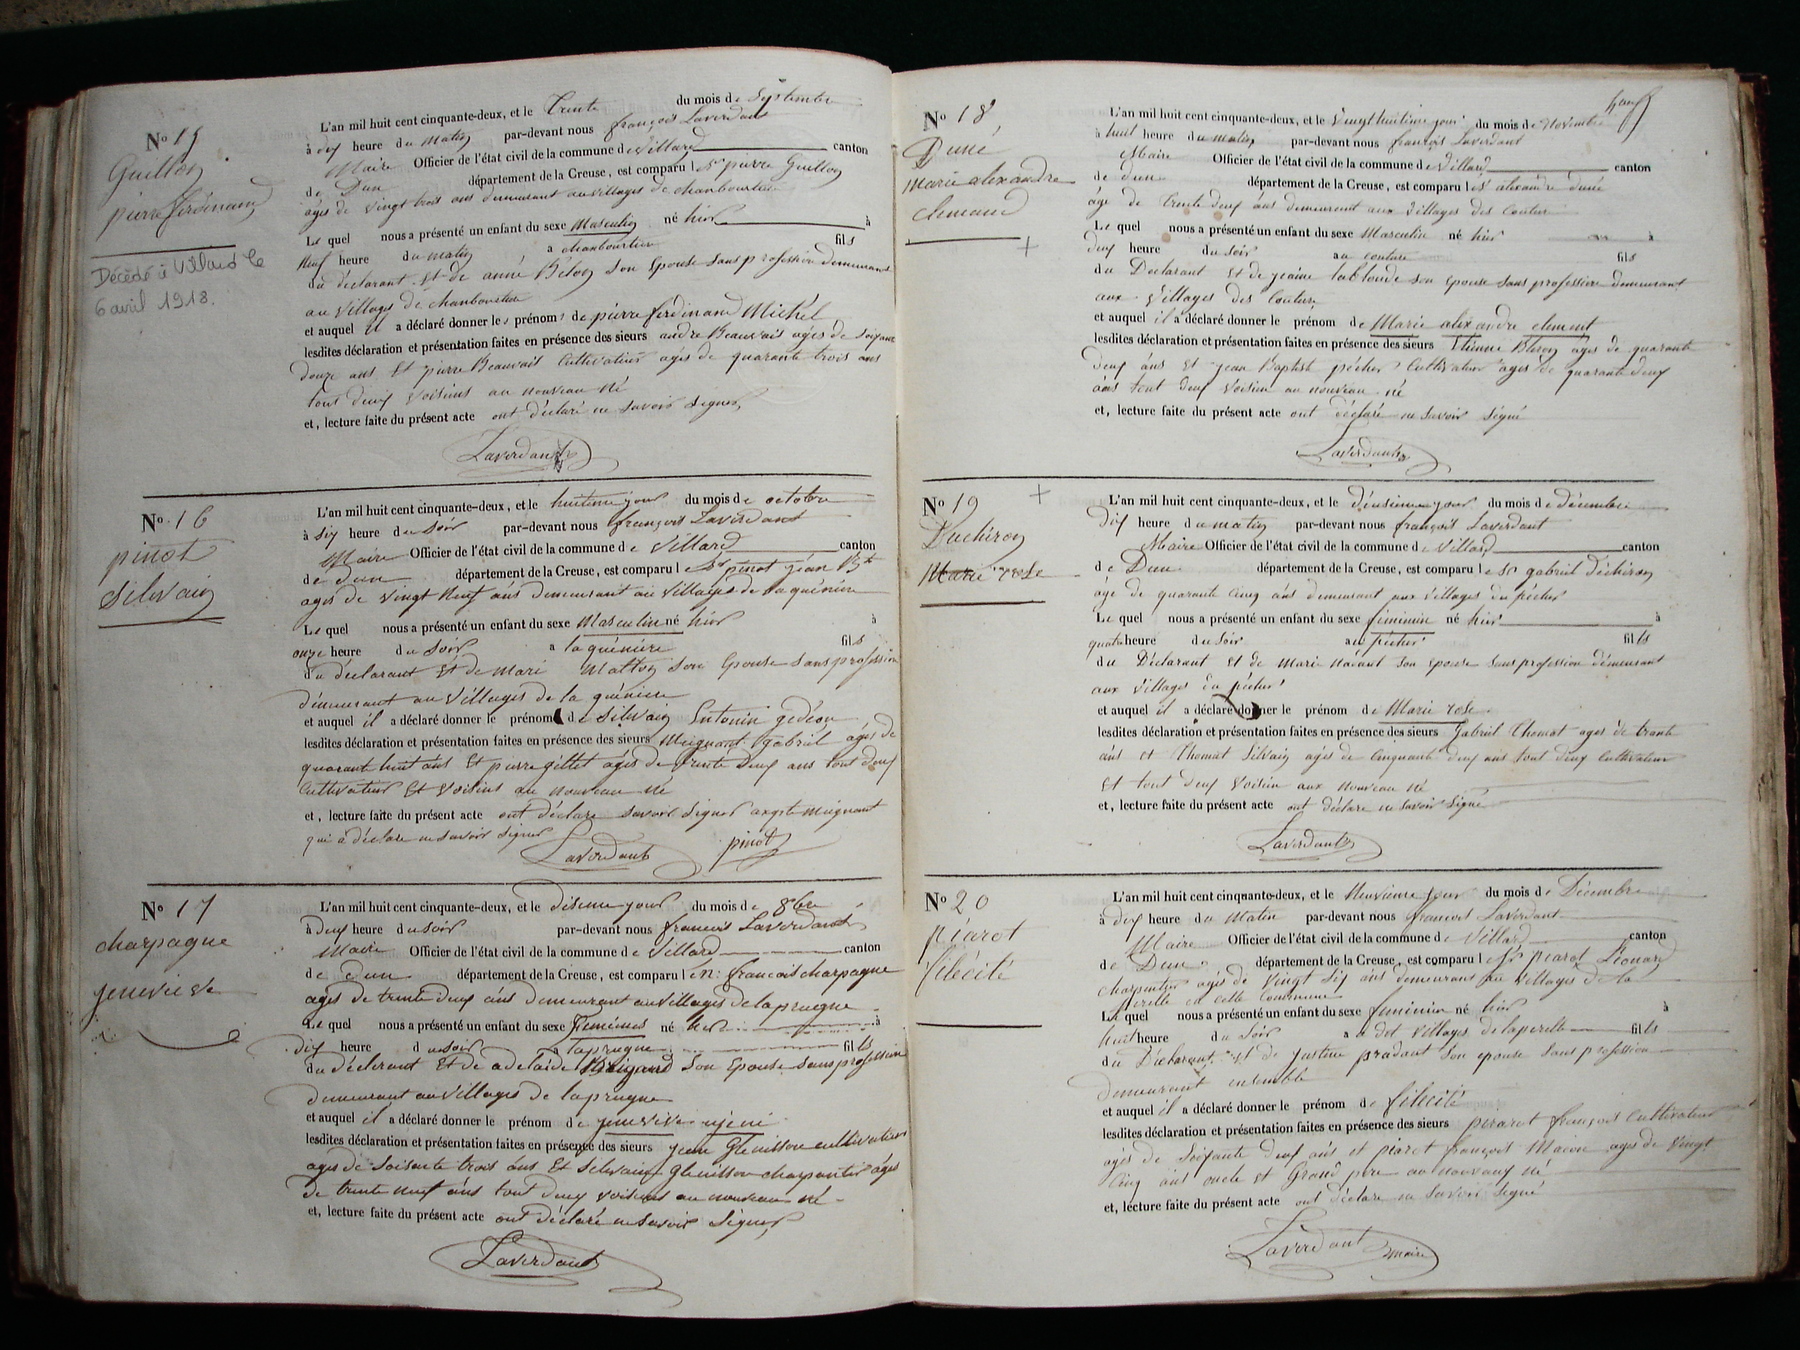 No 15
Guillon
pierre ferdinand
Décédé à Villard le
6 avril 1918.
L'an mil huit cent cinquante-deux, et le Trente du mois de Septembre
à dix heure du matin par-devant nous françois Laverdant
Maire Officier de l'état civil de la commune de Villard canton
de Dun département de la Creuse, est comparu le Sr pierre Guillon
agés de vingt trois ans demeurant au villages de chanbourtier
Le quel nous a présenté un enfant du sexe Masculin né hier à
Neuf heure du matin a chanbourtier fils
du déclarant et de anne Bélon son Epouse sans profession demeurant
au villages de chanbourtier
et auquel il a déclaré donner les prénoms de pierre ferdinand Michel
lesdites déclaration et présentation faites en présence des sieurs andre Beauvais agés de soixante
douze ans Et pierre Beauvais Cultivateur agés de quarante trois ans
tout deux voisins au nouveau né
et, lecture faite du présent acte ont déclaré ne savoir signer,
Laverdant
No 16
pinot
Silvain
L'an mil huit cent cinquante-deux, et le huitieme jour du mois de octobre
à six heure du soir par-devant nous françois Laverdant
Maire Officier de l'état civil de la commune de Villard canton
de dun département de la Creuse, est comparu le Sr pinot jéan Bte
agés de vingt Neuf ans demeurant au villages de la quénirie
Le quel nous a présenté un enfant du sexe Masculin né hier à
onze heure du soir a la quéniere fils
du déclarant et de Marie Mallon son Epouse sans profession
démeurant au villages de la quéniere
et auquel il a déclaré donner le prénom de Silvain Entonin gedéon
lesdites déclaration et présentation faites en présence des sieurs Meignant gabriel agés de
quarante huit ans Et pierre gillet agés de trente deux ans tout deux
Cultivateur Et voisins au nouveau né
et, lecture faite du présent acte ont déclare savoir signer axepte meignant
qui à déclare ne savoir signer
Laverdant pinot
No 17
charpagne
genevieve
L'an mil huit cent cinquante-deux, et le disieme jour du mois de 8bre
à deux heure du soir par-devant nous francois Laverdant
Maire Officier de l'état civil de la commune de Villard canton
de Dun département de la Creuse, est comparu le N: francois charpagne
agés de trente deux ans demeurant au villages de laprugne
Le quel nous a présenté un enfant du sexe feminins né hier à
dix heure du soir a laprugne fils
du déclerant Et de adelaide Brigand son Epouse sans profession
demeurant au villages de laprugne
et auquel il a déclaré donner le prénom de jenevieve ujeni
lesdites déclaration et présentation faites en présence des sieurs jean Glenisson cultivateur
agés de soisante trois ans Et Silvain glénisson charpentier agés
de trente neuf ans tout deux voisins au nouveau né
et, lecture faite du présent acte ont déclaré ne savoir signer
Laverdant
No 18
Duné
Marie alexandre
clemend
L'an mil huit cent cinquante-deux, et le vingt huitieme jour du mois de Novembre
à huit heure du matin par-devant nous françois Laverdant
Maire Officier de l'état civil de la commune de Villard canton
de dun département de la Creuse, est comparu le Sr alexandre duné
âgé de trente deux ans demeurant aux villages des couture
Le quel nous a présenté un enfant du sexe Masculin né hier à
deux heure du soir au couture fils
du Déclarant Et de jeaine lablonde son epouse sans profession demeurant
aux villages des Couture
et auquel il a déclaré donner le prénom de Marie alixandre clement
lesdites déclaration et présentation faites en présence des sieurs Etienne Bléron agés de quarante
deux ans Et jean Baptiste pécher Cultivateur agés de quarante deux
ans tout deux voisin au nouveau né
et, lecture faite du présent acte ont déclaré ne savoir Signé
Laverdant
No 19
Duchiron
Marie rose
L'an mil huit cent cinquante-deux, et le deusieme jour du mois de décembre
dix heure du matin par-devant nous françois Laverdant
Maire Officier de l'état civil de la commune de Villard canton
de Dun département de la Creuse, est comparu le Sr gabriel déchiron
âgé de quarante cinq ans demeurant aux villages du pécher
Le quel nous a présenté un enfant du sexe féminin né hier à
quatre heure du soir au pécher fils
du Déclarant Et de Marie nadaut son epouse sans profession démeurant
aux villages du pécher
et auquel il a déclaré donner le prénom de Marie rose
lesdites déclaration et présentation faites en présence des sieurs gabriel Thomat ages de trante
ans et Thomat Silvain agés de cinquante deux ans tout deux cultivateur
Et tout deux voisin aux nouveau né
et, lecture faite du présent acte ont déclare ne savoir Signé
Laverdant
No 20
piarot
félécité
L'an mil huit cent cinquante-deux, et le Neuvieme jour du mois de Décembre
à dix heure du Matin par-devant nous francois Laverdant
Maire Officier de l'état civil de la commune de Villard canton
de Dun département de la Creuse, est comparu le Sr pearot Léonard
charpentier agés de vingt six ans demeurant au villages de la
perelle en cette Commune
Le quel nous a présenté un enfant du sexe feminin né hier à
huit heure du Soir a dot villages de laperelle fils
du Déclarant Et de justine pradaut son epouse sans profession
demeurant ensemble
et auquel il a déclaré donner le prénom de félécité
lesdites déclaration et présentation faites en présence des sieurs pearot françois Cultivateur
agés de soixante deux ans et piarot françois Macon ages de vingt
cinq ans oncle et Grand pere au nouveaux né
et, lecture faite du présent acte ont déclaré ne Savoir Signé
Laverdant maire